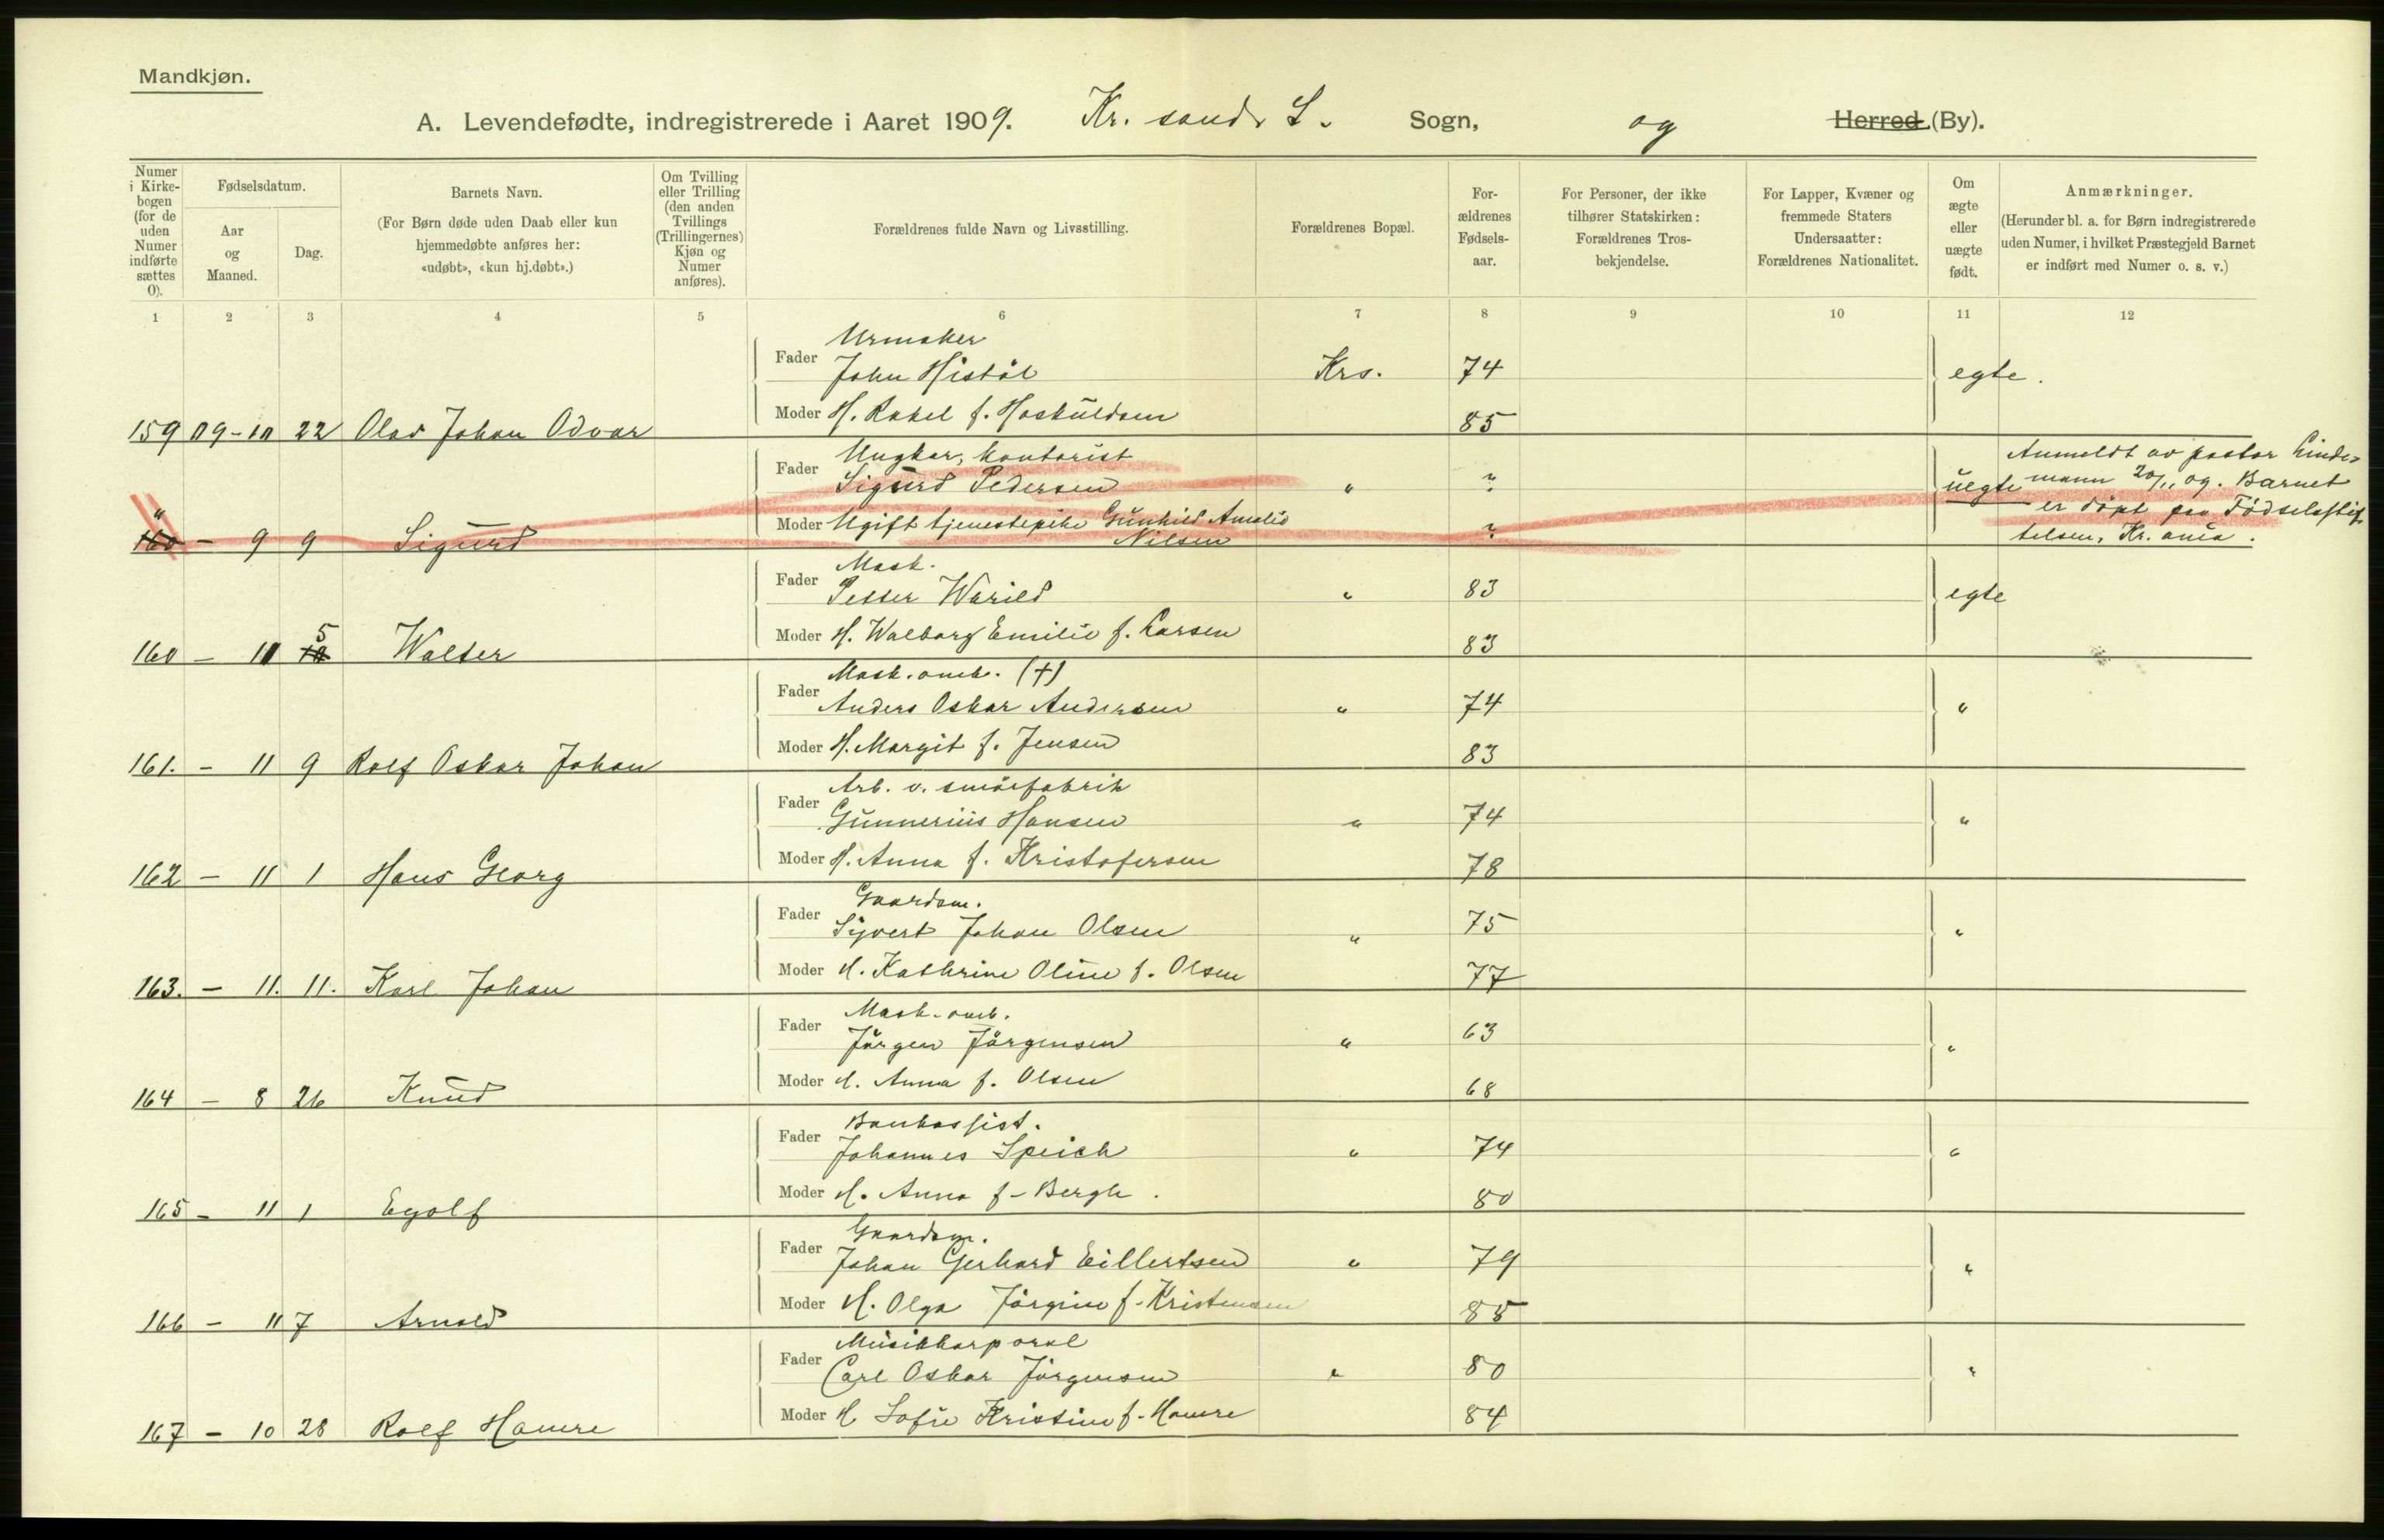 Mandkjøn.
A. Levendefødte, indregistrerede i Aaret 1909. Kr. sands S. Sogn, og Herred (By).
Numer i Kirke-bogen (for de uden Numer indførte sættes 0).
Fødselsdatum.
Aar og Maaned.
Dag.
Barnets Navn.
(For Børn døde uden Daab eller kun hjemmedøbte anføres her: «udøbt», «kun hj.døbt».)
Om Tvilling eller Trilling (den anden Tvillings (Trillingernes) Kjøn og Numer anføres).
Forældrenes fulde Navn og Livsstilling.
Forældrenes Bopæl.
For-ældrenes Fødsels-aar.
For Personer, der ikke tilhører Statskirken: Forældrenes Tros-bekjendelse.
For Lapper, Kvæner og fremmede Staters Undersaatter: Forældrenes Nationalitet.
Om ægte eller uægte født.
Anmærkninger.
(Herunder bl. a. for Børn indregistrerede uden Numer, i hvilket Præstegjeld Barnet er indført med Numer o. s. v.)
1 2 3 4 5 6 7 8 9 10 11 12
Urmaker
Fader John Histöl Krs. 74 egte.
Moder H. Rakel f. Hoskuldsen 85
159 09-10 22 Olav Johan Odvar
Ungkar, kontorist
Fader Sigurd Pedersen " ? uegte
Moder Ugift tjenestepike Gunhild Amalie Nilsen ?
160 - 9 9 Sigurd
Anmeldt av pastor Linde-
mann 20/11 09. Barnet
er döpt paa Födselsstif-
telsen, Kr. ania.
Mask.
Fader Petter Warild " 83 egte
Moder H. Walborg Emilie f. Larsen 83
160 - 10 5 Walter
Mask. arb. (+)
Fader Anders Oskar Andersen " 74 "
Moder H. Margit f. Jensen 83
161. - 11 9 Rolf Oskar Johan
Arb. v. smörfabrik
Fader Gunnerius Hansen " 74 "
Moder H. Anna f. Kristofersen 78
162 - 11 1 Hans Georg
Gaardsm.
Fader Syvert Johan Olsen " 75 "
Moder H. Kathrine Oline f. Olsen 77
163. - 11. 11. Karl Johan
Mask. arb.
Fader Jörgen Jörgensen " 63 "
Moder H. Anna f. Olsen 68
164 - 8 26 Knud
Bankassist.
Fader Johannes Speich " 74 "
Moder H. Anna f. Bergh. 80
165 - 11 1 Egolf
Gaardsm.
Fader Johan Gerhard Eillertsen " 79 "
Moder H. Olga Jörgine f. Kristensen 85
166 - 11 7 Arnold
Musikkorporal
Fader Carl Oskar Jörgensen " 80 "
Moder H Sofie Kristine f. Hamre 84
167 - 10 28 Rolf Hamre